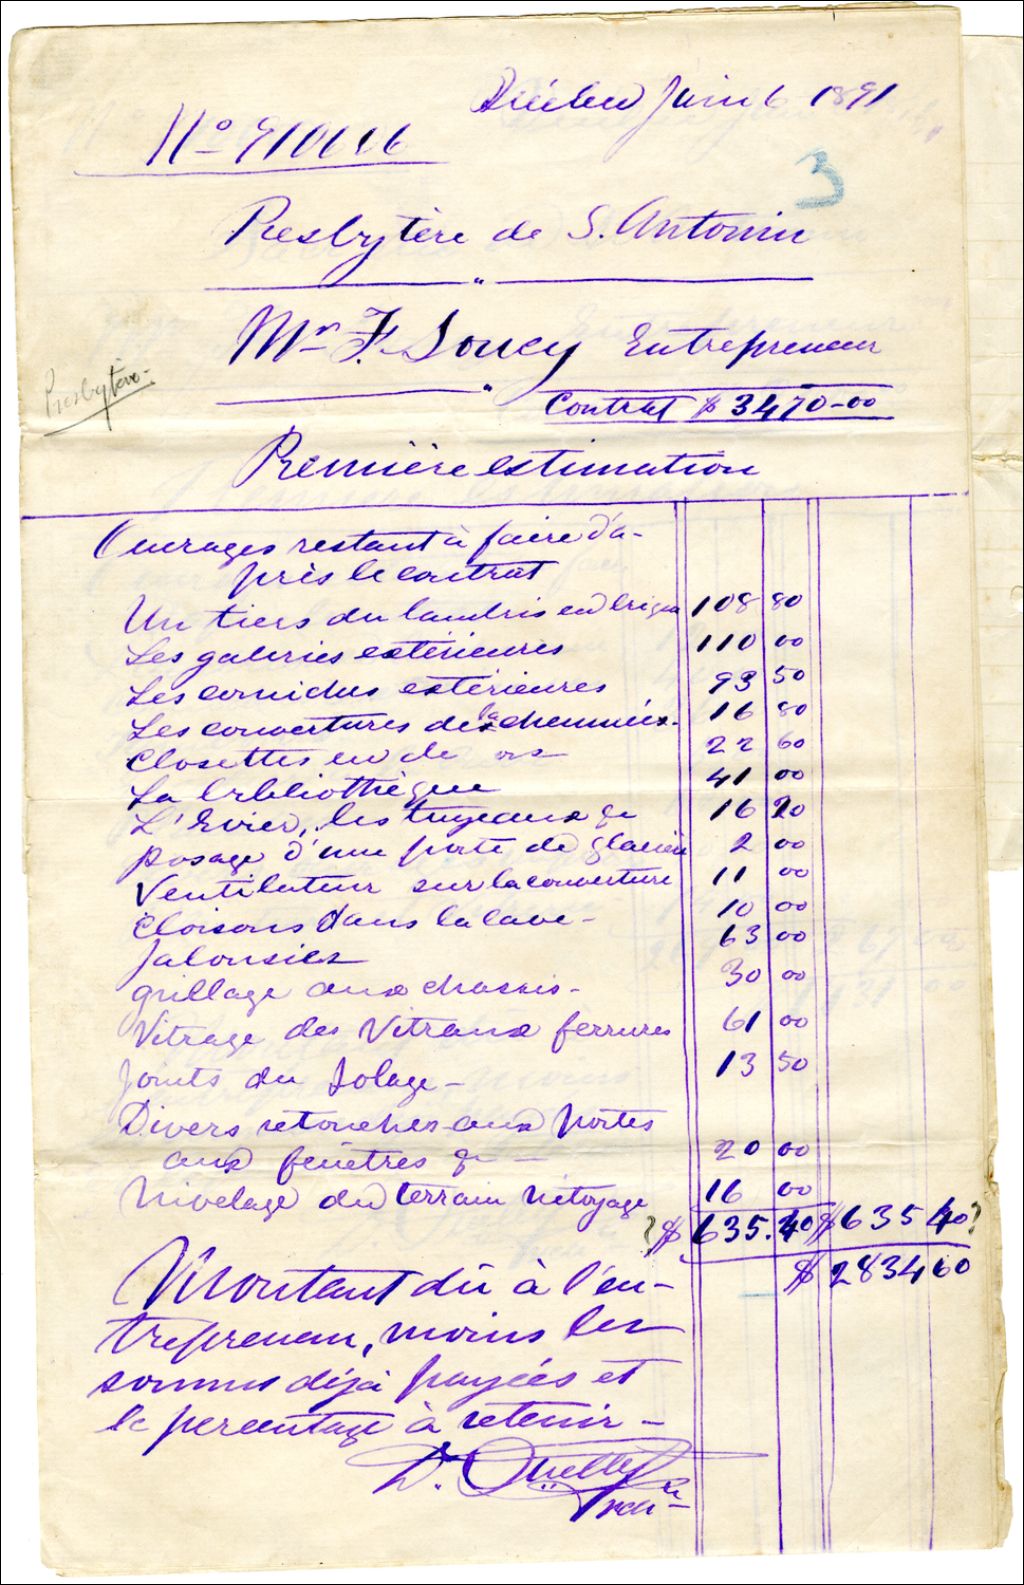 Québec Juin 6 1891
No 910616
3
Presbytère de S. Antonin
"
Mr F. Soucy Entrepreneur
"
Presbytère-
Contrat $ 3470-00
Première estimation
Ouvrages restant à faire d'a-
près le contrat
Un tiers du lambris en brique 108 80
Les galeries extérieures 110 00
Les corniches extérieures 93 50
Les couvertures de la cheminées. 16 80
Closettes en de 22 60
La bibliothèque 41 00
L'Evier, les tuyeaux & 16 20
posage d'une porte de glacière 2 00
Ventilateur sur la couverture 11 00
Cloisons dans la cave- 10 00
Jalousies 63 00
grillage aux chassis- 30 00
Vitrage des Vitraux ferrures 61 00
Joints du solage- 13 50
Divers retouches aux portes
aux fenêtres & - 20 00
Nivelage du terrain netoyage 16 00
? $ 635.40 $ 635 40 ?
$ 2834 60
Montant dû à l'en-
trepreneur, moins les
sommes déjà payées et
le percentage à retenir-
D. Ouellet
Arch